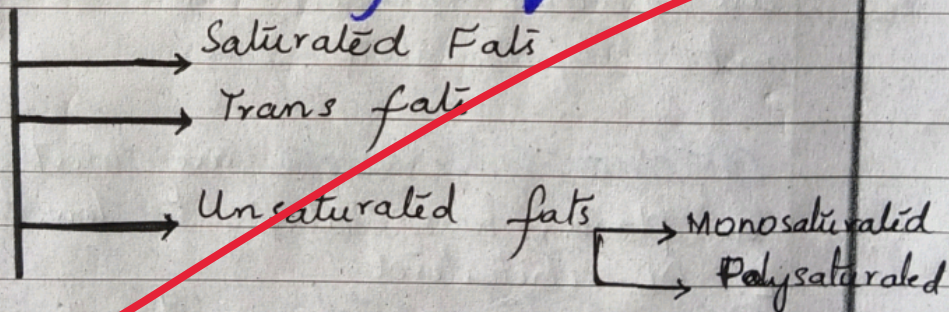 Saturated Fats
Trans fats
Unsaturated fats
Monosaturated
Polysaturated